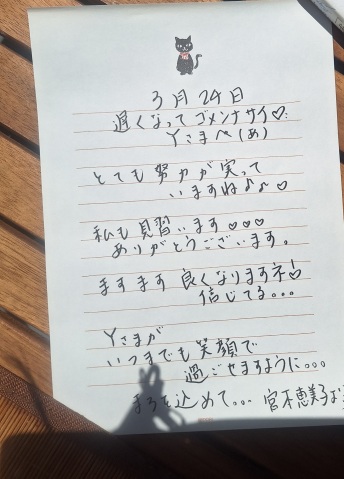 3月24日
遅くなってゴメンナサイ♡
Yさまへ(あ)
とても努力が実って
いますね♪♪♡
私も見習います♡♡♡
ありがとうございます。
ますます良くなりますネ!
信じてる...
Yさまが
いつまでも笑顔で
過ごせますように...
を込めて... 宮本恵美子より